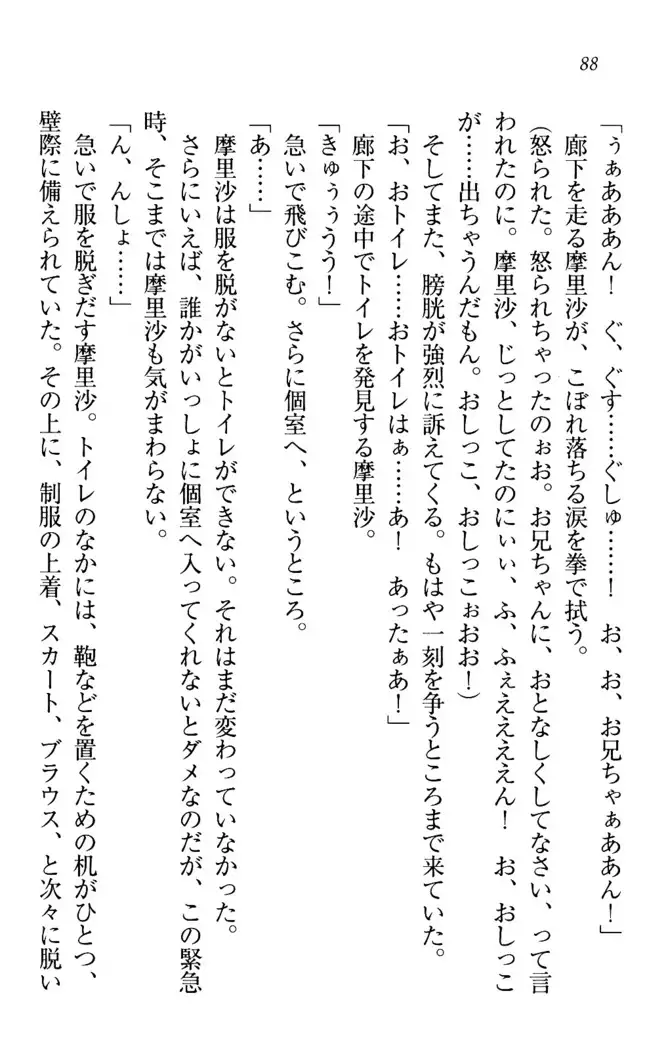 88
「うぁあああん！　ぐ、ぐす……ぐしゅ……！　お、お、お兄ちゃぁああん！」
廊下を走る摩里沙が、こぼれ落ちる涙を拳で拭う。
（怒られた。怒られちゃったのぉお。お兄ちゃんに、おとなしくしてなさい、って言
われたのに。摩里沙、じっとしてたのにぃぃ、ふ、ふぇえええん！　お、おしっこ
が……出ちゃうんだもん。おしっこ、おしっこぉおお！）
そしてまた、膀胱が強烈に訴えてくる。もはや一刻を争うところまで来ていた。
「お、おトイレ……おトイレはぁ……あ！　あったぁあ！」
廊下の途中でトイレを発見する摩里沙。
「きゅぅぅうう！」
急いで飛びこむ。さらに個室へ、というところ。
「あ……」
摩里沙は服を脱がないとトイレができない。それはまだ変わっていなかった。
さらにいえば、誰かがいっしょに個室へ入ってくれないとダメなのだが、この緊急
時、そこまでは摩里沙も気がまわらない。
「ん、んしょ……」
急いで服を脱ぎだす摩里沙。トイレのなかには、鞄などを置くための机がひとつ、
壁際に備えられていた。その上に、制服の上着、スカート、ブラウス、と次々に脱い